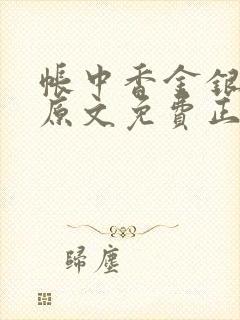 帳中香金銀
原文免費正
歸塵